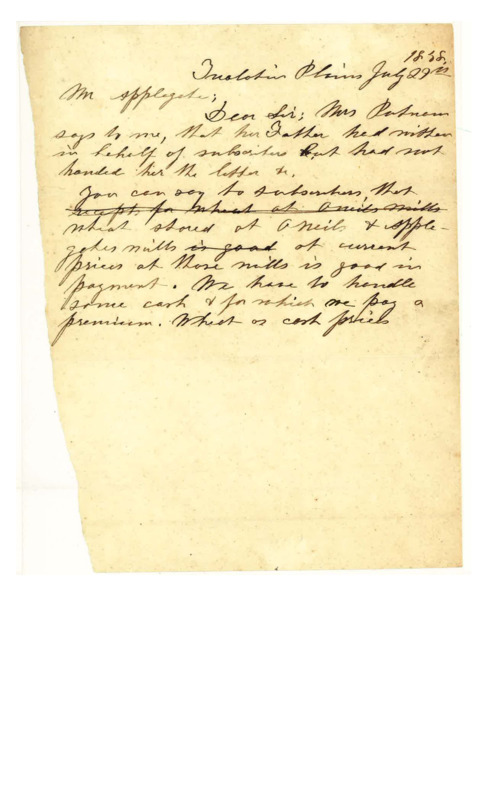 1858.
Tualatin Plains July 29th
Mr Applegate;
Dear Sir; Mrs Putnam
says to me, that her Father had written
in behalf of subscribers but had not
handed her the letter &.
You can say to subscribers, that
recepts for wheat at Oneils mills
wheat stored at ONeils & Apple-
gates mills is good at current
prices at those mills is good in
payment. We have to handle
some cash & for which we pay a
premium. Wheat as cash prices